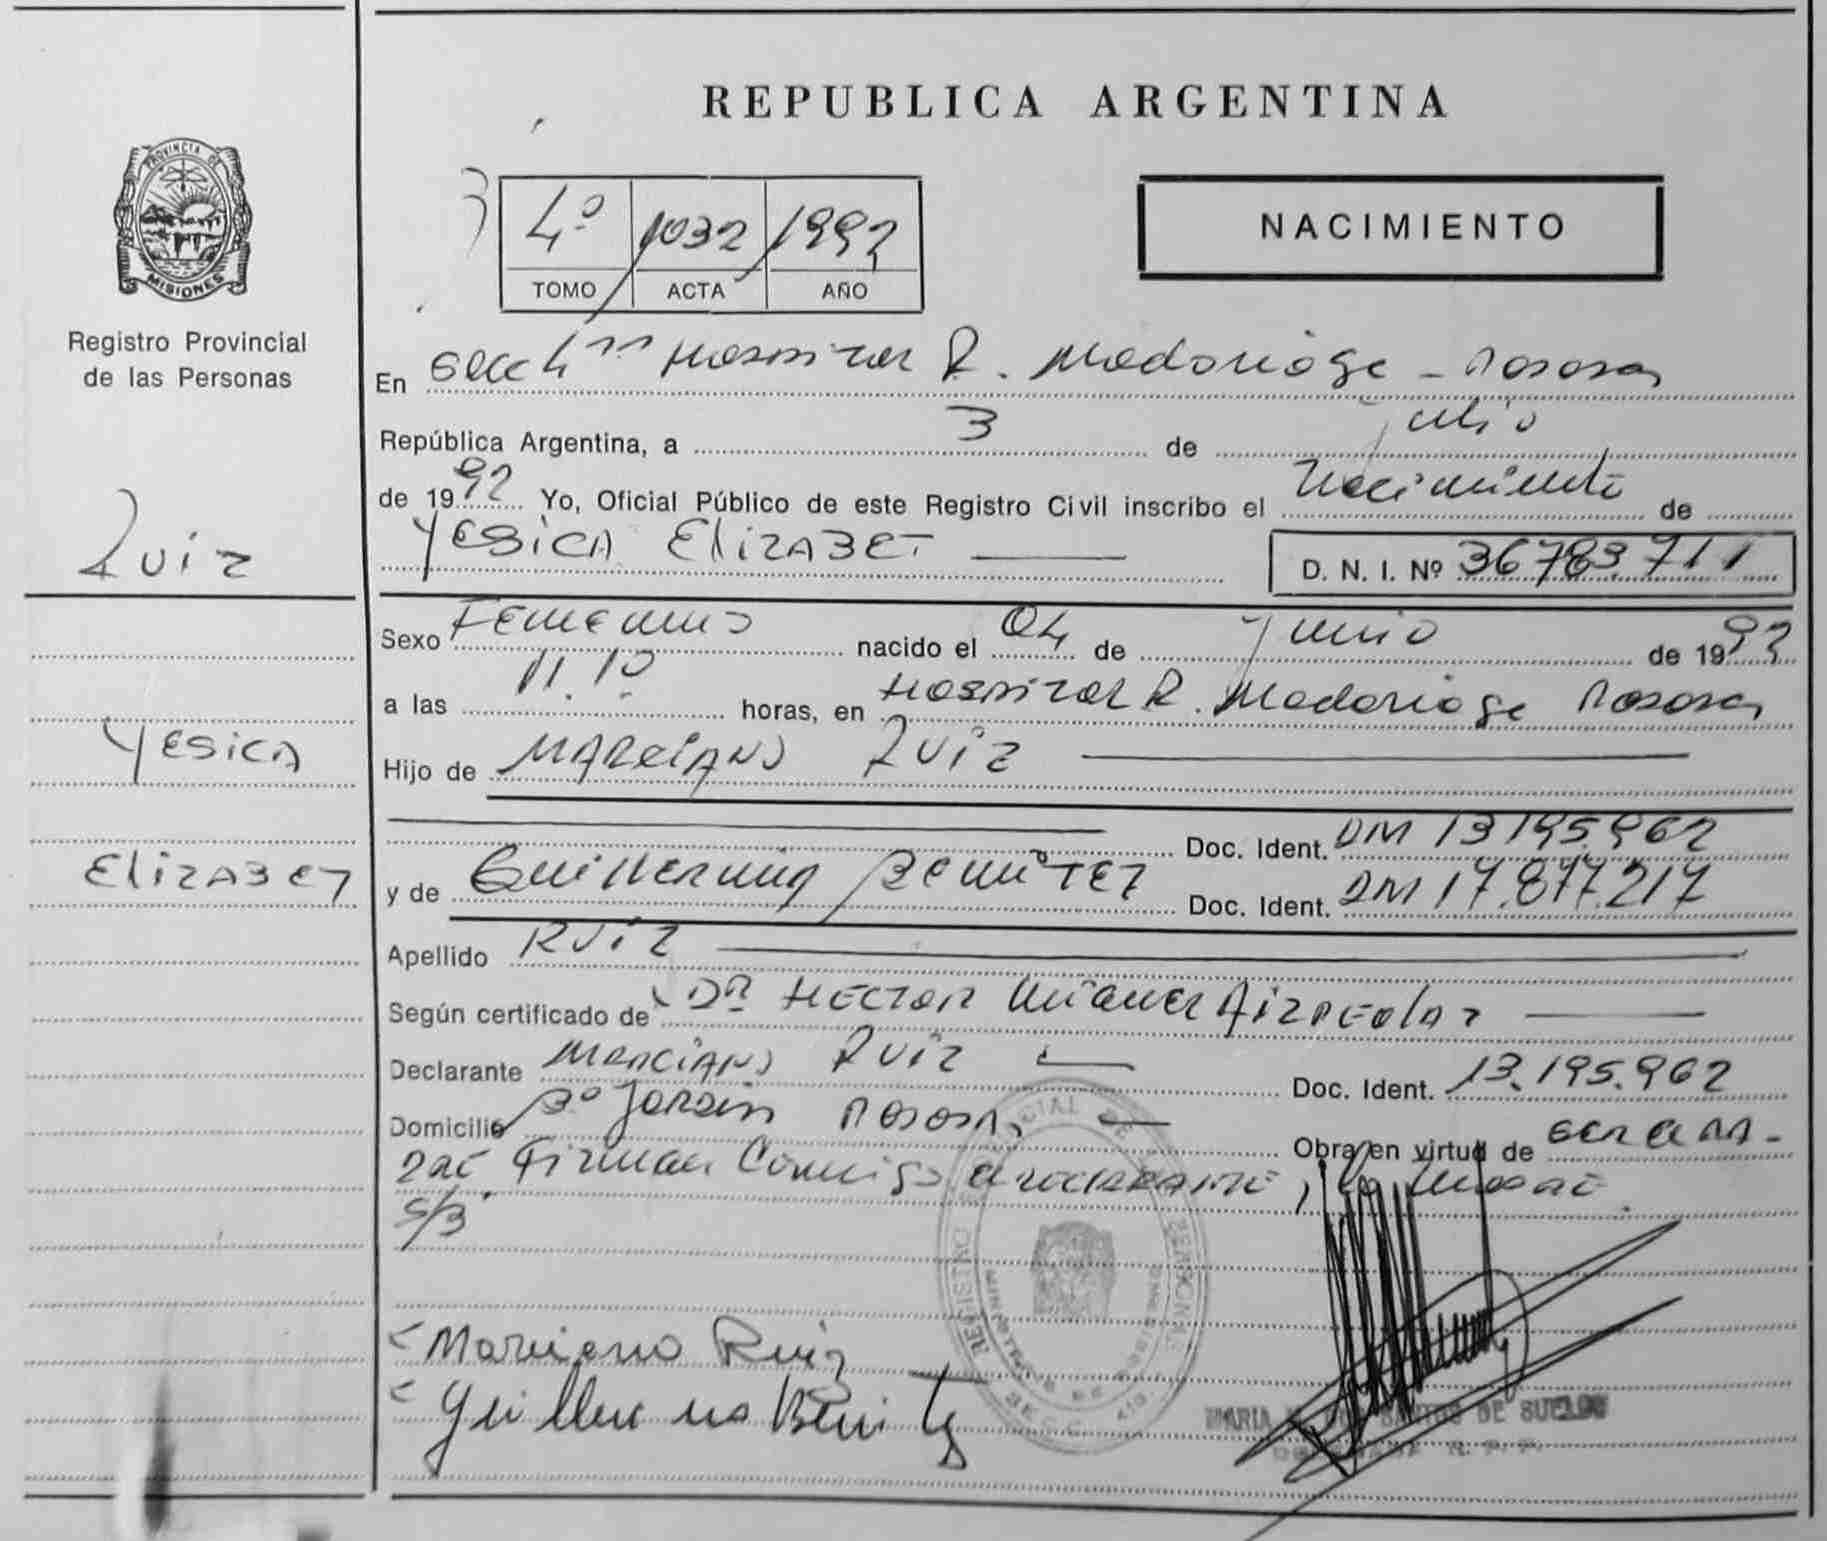 REPUBLICA ARGENTINA
PROVINCIA DE
MISIONES
Registro Provincial
de las Personas
4º 1032 1992
TOMO ACTA AÑO
NACIMIENTO
En Secc 4ª Hospital R. Madariaga - Posadas
República Argentina, a 3 de julio
de 1992 Yo, Oficial Público de este Registro Civil inscribo el Nacimiento de
YESICA ELIZABET
D. N. I. Nº 36783711
Ruiz
YESICA
ELIZABET
Sexo Femenino nacido el 04 de junio de 1992
a las 11.10 horas, en Hospital R. Madariaga Posadas
Hijo de MARCIANO RUIZ
Doc. Ident. DM 13195.962
y de Guillermina Benitez Doc. Ident. DM 17.877.217
Apellido RUIZ
Según certificado de DR HECTOR Miguel
Declarante MARCIANO RUIZ Doc. Ident. 13.195.962
Domicilio Bº Jardin Posadas Obra en virtud de
Firman Conmigo declarante, la
S/B
Marciano Ruiz
Guillermina Benitez
REGISTRO PROVINCIAL DE LAS PERSONAS
MARIA DOS SANTOS DE
R. P. P.